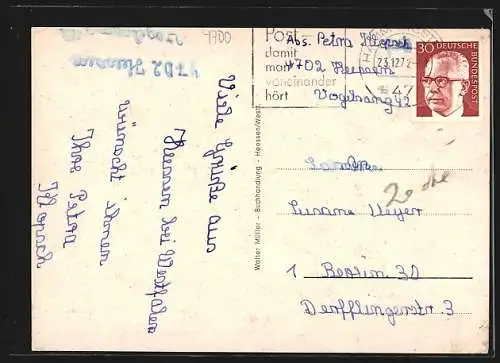 4700
Viele Grüße aus
Heessen bei Westfalen
wünscht Ihnen
Ihre Petra
Walter Müller - Buchhandlung - Heessen/Westf.
Post
damit
man
voneinander
hört
Abs. Petra
4702 Heessen
Vogelsang 42
23.12.72
47
30 DEUTSCHE
BUNDESPOST
Familie
Susane Meyer
1 Berlin 30
Derfflingerstr 3
4702 Heessen